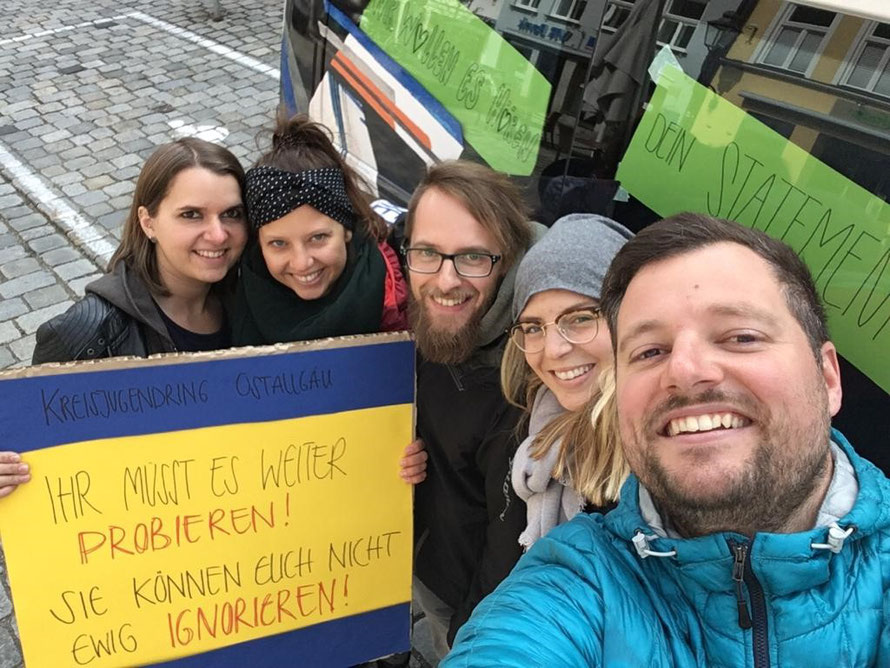 WOLLEN ES HÖREN
DEIN STATEMENT
KREISJUGENDRING OSTALLGÄU
IHR MÜSST ES WEITER
PROBIEREN!
SIE KÖNNEN EUCH NICHT
EWIG IGNORIEREN!